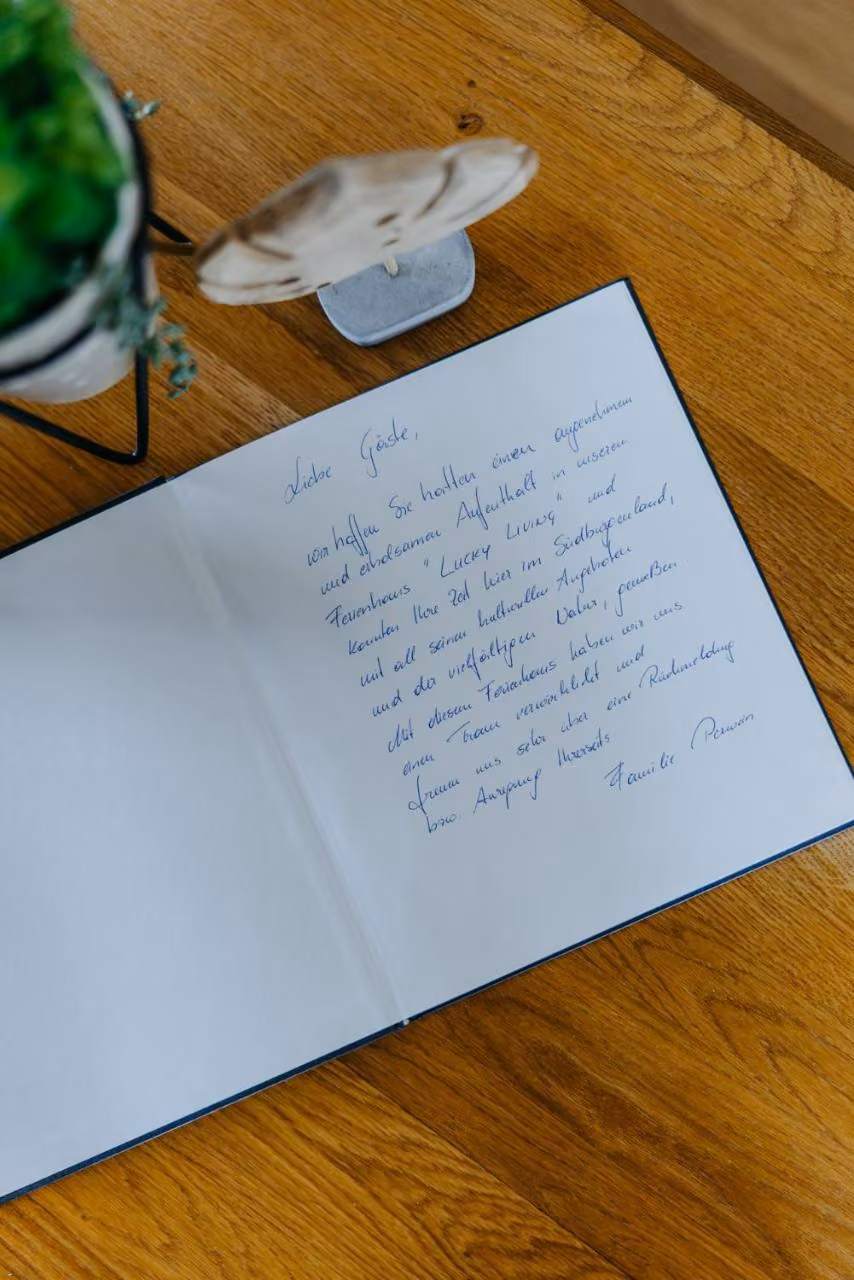 Liebe Gäste,
wir hoffen Sie hatten einen angenehmen
und erholsamen Aufenthalt in unserem
Ferienhaus "LUCKY LIVING" und
konnten Ihre Zeit hier im Südburgenland,
mit all seinen kulturellen Angeboten
und der vielfältigen Natur, genießen.
Mit diesem Ferienhaus haben wir uns
einen Traum verwirklicht und
freuen uns sehr über eine Rückmeldung
bzw. Anregung Ihrerseits.
Familie